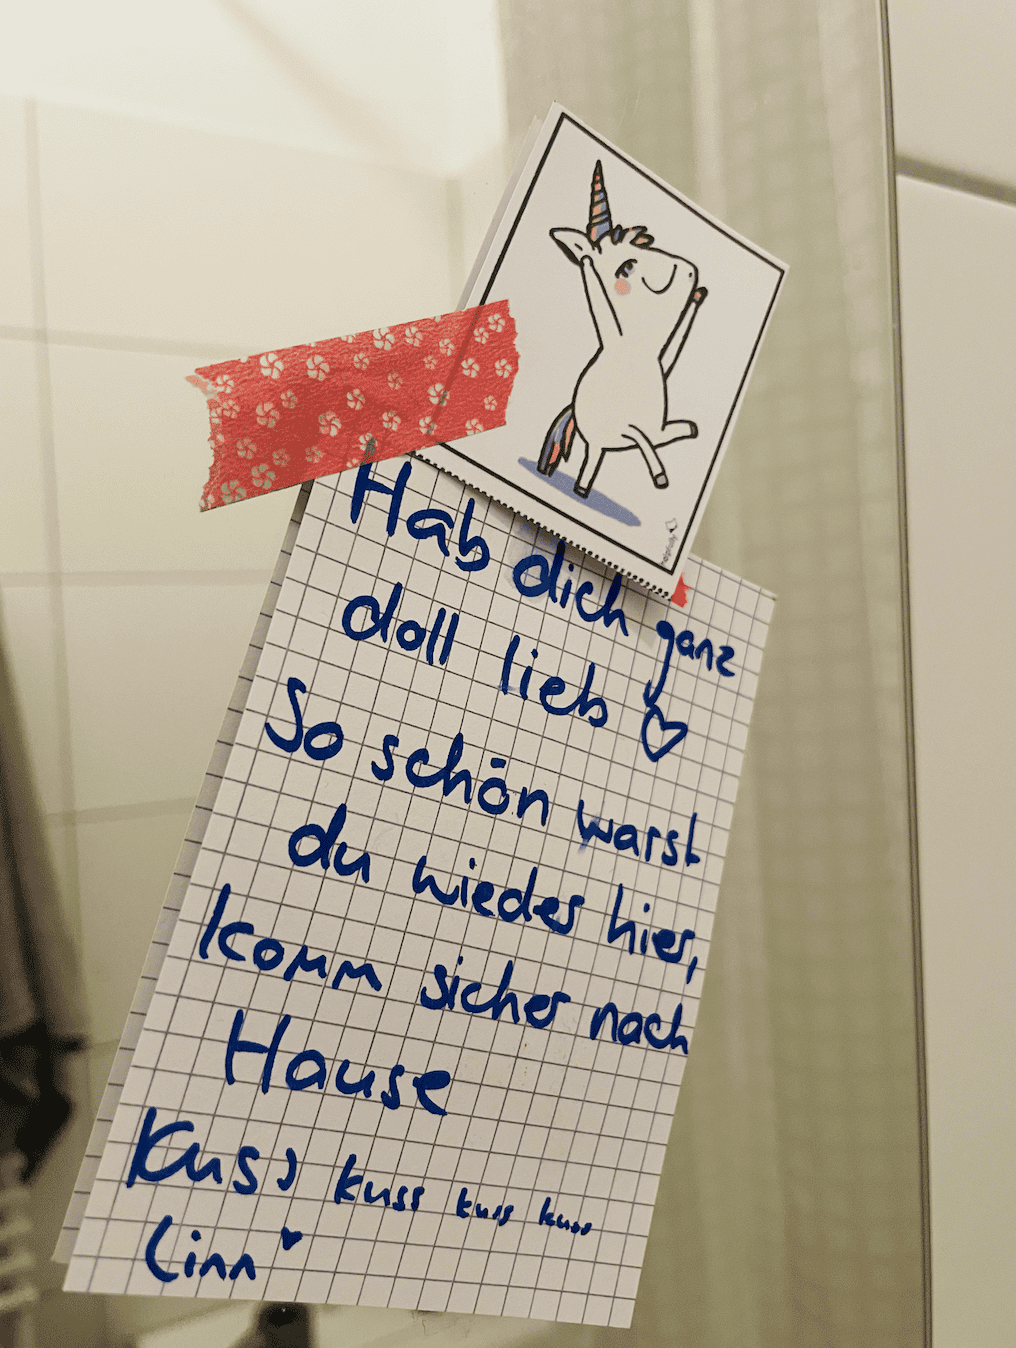 Hab dich ganz
doll lieb ♡
So schön warst
du wieder hier,
komm sicher nach
Hause
Kuss kuss kuss kuss
Linn ♥